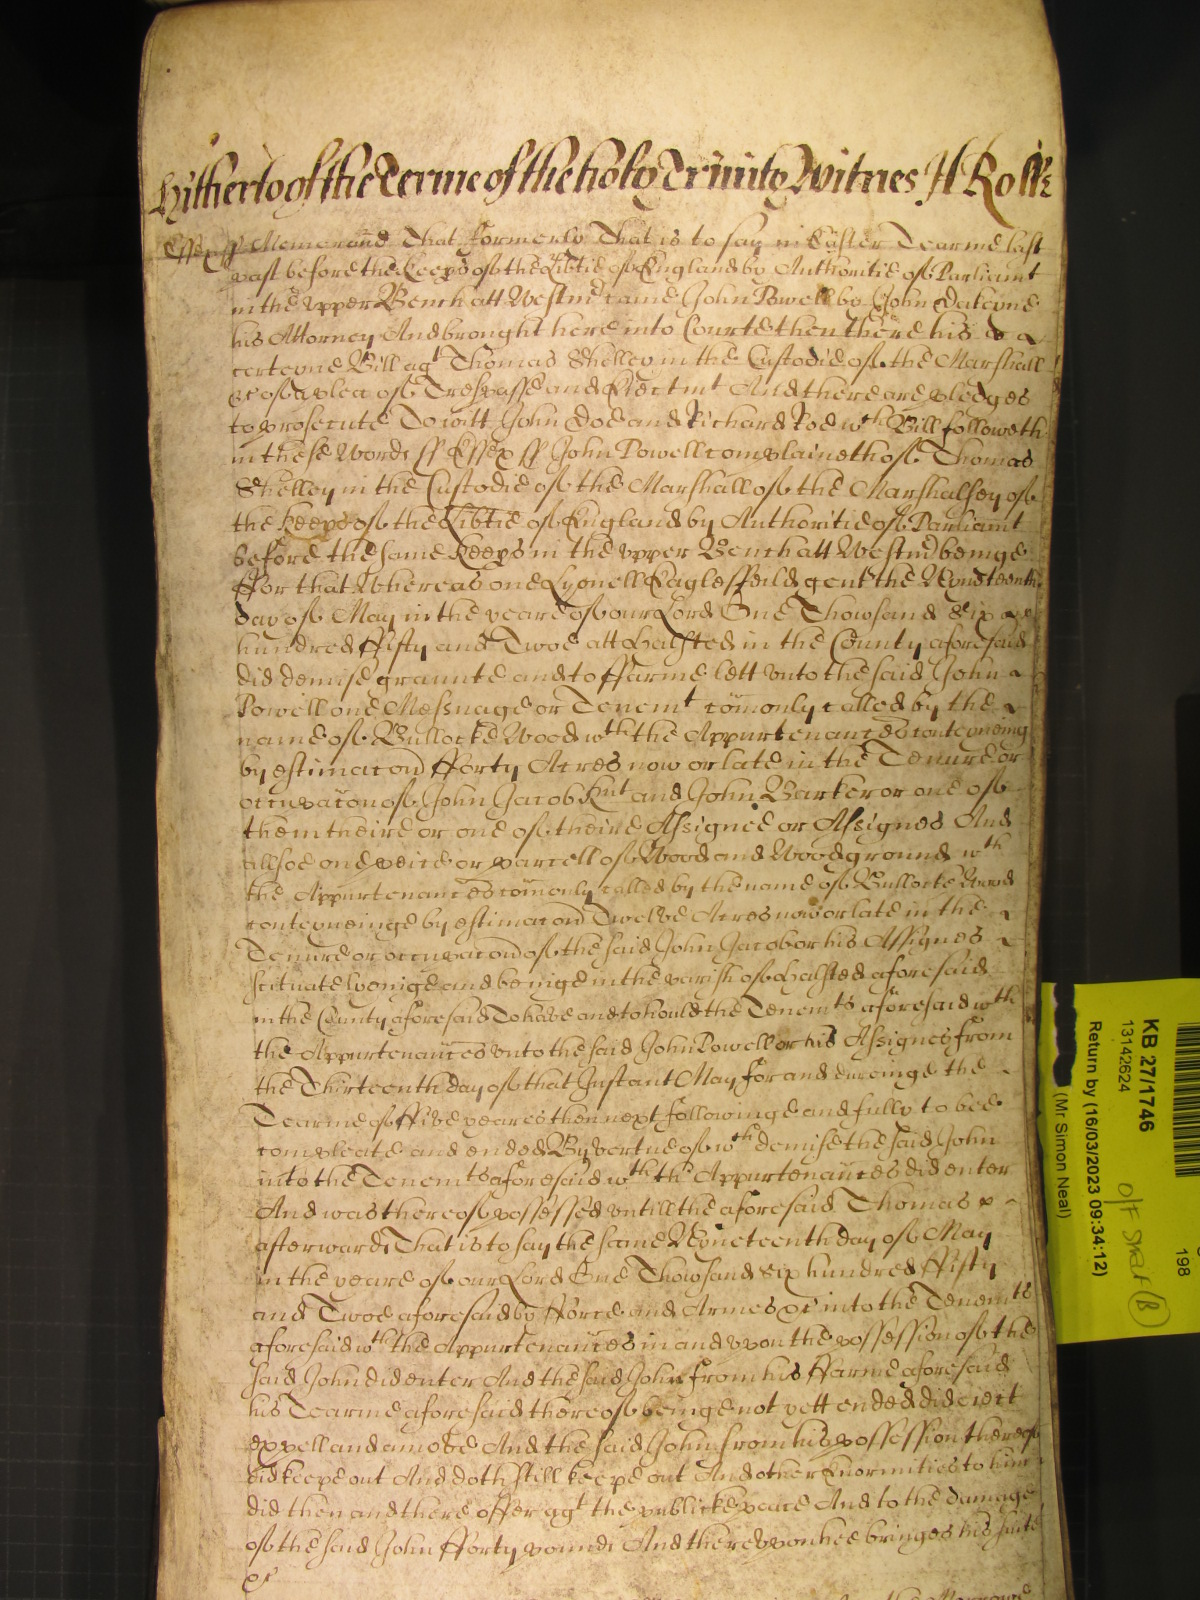 Hitherto of the Terme of the holy Trinity Witnes H Rolle
Essex ss Memorand That formerly That is to say in Easter Tearme last
past before the Keeps of the Libtie of England by Authoritie of Parliamt
in the vpper Bench att Westmr came John Powell by John Dakeyne
his Attorney And brought here into Courte then there his
certeyne Bill agt Thomas Shelley in the Custodie of the Marshall
&c of a plea of Trespasse and Eiectmt And there are pledges
to prosecute To witt John Doe and Richard Roe wch Bill followeth
in these Words ss Essex ss John Powell complaineth of Thomas
Shelley in the Custodie of the Marshall of the Marshalsey of
the Keeps of the Libtie of England by Authoritie of Parliamt
before the same Keeps in the vpper Bench att Westmr beinge
ffor that Whereas one Lyonell Eaglesfeild gent the Nyneteenth
day of May in the yeare of our Lord One Thowsand Six
hundred ffifty and Twoe att Halsted in the County aforesaid
did demise graunte and to ffarme lett vnto the said John
Powell one Messuage or Tenemt comonly called by the
name of Bullocke Wood wth the Appurtenances conteyneing
by estimacon fforty Acres now or late in the Tenure or
occupacon of John Jacob Knt and John Barker or one of
them theire or one of theire Assignee or Assignes And
allsoe one peice or parcell of Wood and Woodground wth
the Appurtenances comonly called by the name of Bullocke Wood
conteyneinge by estimacon Twelve Acres now or late in the
Tenure or occupacon of the said John Jacob or his Assignes
scituate lyeinge and beinge in the parish of Halsted aforesaid
in the County aforesaid To have and to hould the Tenemts aforesaid wth
the Appurtenances vnto the said John Powell or his Assignes from
the Thirteenth day of that Instant May for and dureinge the
Tearme of ffive yeares then next followinge and fully to bee
compleate and ended By vertue of wch demise the said John
into the Tenemts aforesaid wth th' Appurtenances did enter
And was thereof possessed vntill the aforesaid Thomas
afterwards That is to say the same Nyneteenth day of May
in the yeare of our Lord One Thowsand six hundred ffifty
and Twoe aforesaid by fforce and Armes &c into the Tenemts
aforesaid wth the Appurtenances in and vpon the possession of the
said John did enter And the said John from his ffarme aforesaid
his Tearme aforesaid thereof beinge not yett ended did eiect
expell and amove And the said John from his possession thereof
did keepe out And doth still keepe out And other Enormities to him
did then and there offer agt the publicke peace And to the damage
of the said John fforty pounds And therevpon hee bringes his suite
&c
KB 27/1746
13142624
Return by (16/03/2023 09:34:12)
(Mr Simon Neal)
198